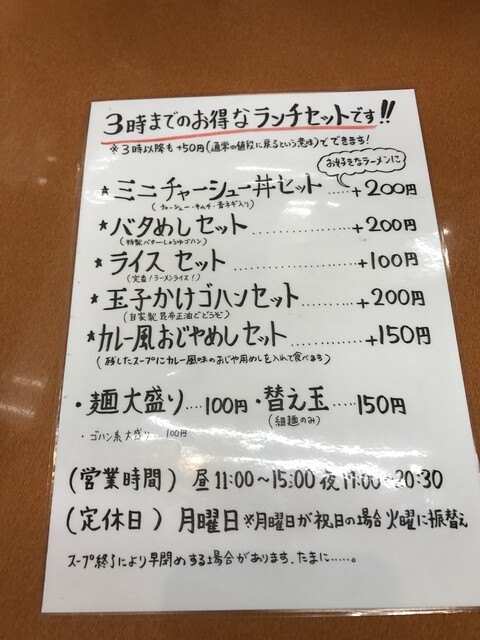 3時までのお得なランチセットです!!
※3時以降も+50円(通常の値段に戻るという意味)でできます!
お好きなラーメンに
★ミニチャーシュー丼セット……+200円
(チャーシュー・キムチ・青ネギ入り)
★バタめしセット……………+200円
(特製バターしょうゆゴハン)
★ライスセット……………+100円
(定番!ラーメンライス!)
★玉子かけゴハンセット………+200円
(自家製昆布正油でどうぞ)
★カレー風おじやめしセット……+150円
(残したスープにカレー風味のおじや用めしを入れて食べます)
・麺大盛り……100円 ・替え玉……150円
(細麺のみ)
・ゴハン系大盛り……100円
(営業時間) 昼11:00~15:00 夜17:00~20:30
(定休日) 月曜日 ※月曜日が祝日の場合火曜に振替え
スープ終了により早閉めする場合があります、たまに……。